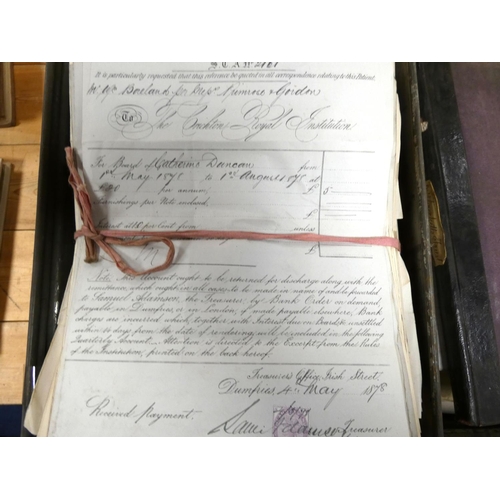 It is particularly requested that this reference be quoted in all correspondence relating to this Patient.
To The Crichton Royal Institution
For Board of Catherine Duncan from
1st May 1878 to 1st August 1878 at
per annum, £ 5
£
unless
£
Note. This account ought to be returned for discharge along with the
remittance which ought in all respects to be made in name of and be forwarded
to Samuel Adamson, the Treasurer, by Bank Order on demand
payable in Dumfries or in London, if made payable elsewhere, Bank
charges are incurred which with Interest due on Boards to unsettled
within 10 days from the date of rendering will be included in the following
Quarterly Account. Attention is directed to the Excerpt from the Rules
of the Institution, printed on the back hereof.
Treasurers Office, Irish Street,
Dumfries 4th May 1878
Received Payment.
Treasurer